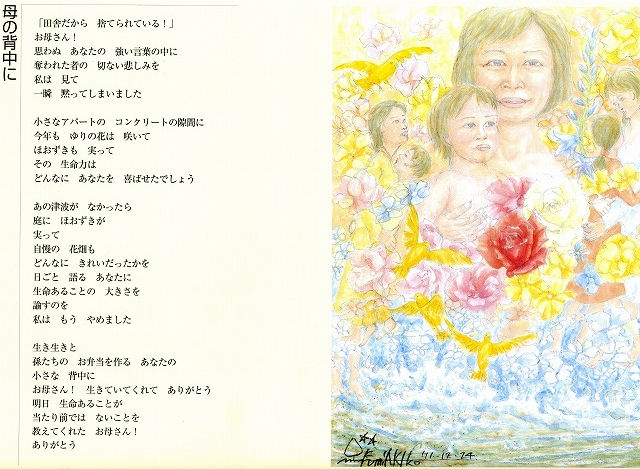 母の背中に
「田舎だから　捨てられている！」
お母さん！
思わぬ　あなたの　強い言葉の中に
奪われた者の　切ない悲しみを
私は　見て
一瞬　黙ってしまいました
小さなアパートの　コンクリートの隙間に
今年も　ゆりの花は　咲いて
ほおずきも　実って
その　生命力は
どんなに　あなたを　喜ばせたでしょう
あの津波が　なかったら
庭に　ほおずきが
実って
自慢の　花畑も
どんなに　きれいだったかを
日ごと　語る　あなたに
生命あることの　大きさを
諭すのを
私は　もう　やめました
生き生きと
孫たちの　お弁当を作る　あなたの
小さな　背中に
お母さん！　生きていてくれて　ありがとう
明日　生命あることが
当たり前では　ないことを
教えてくれた　お母さん！
ありがとう
FumiAKIko '11.12.24.